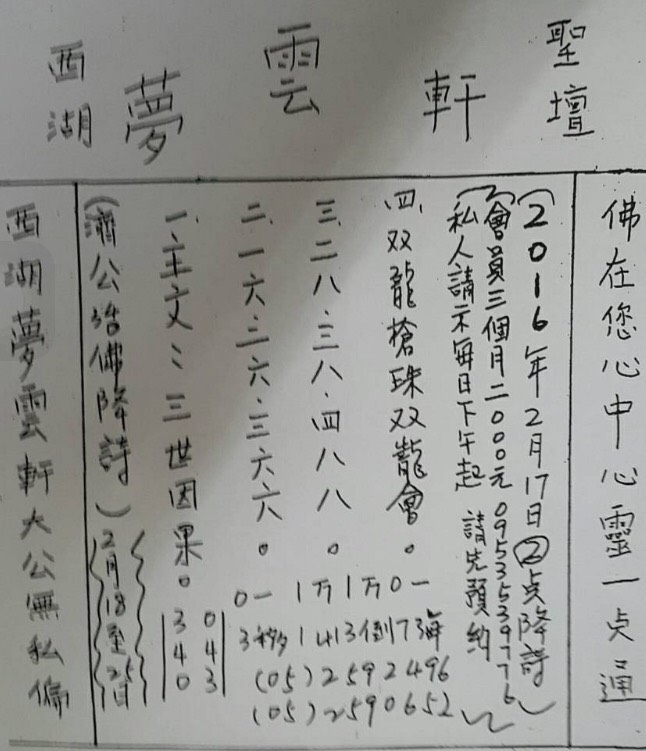 聖壇
西湖夢雲軒
佛在您心中心靈一点通
(2016年2月17日②点降詩)
(會員三個月二000元0953539776
私人請示每日下午起 請先預約)
四.双龍槍珠双龍會。
三.二八.三八.四八八。
二.一六.二六.三六六。
一.主文:三世因果。
0一1万1万0一
3秒1413倒73海
(05)2592496
(05)2590652
043
340
(濟公活佛降詩)
2月18至25日
西湖夢雲軒大公無私偏